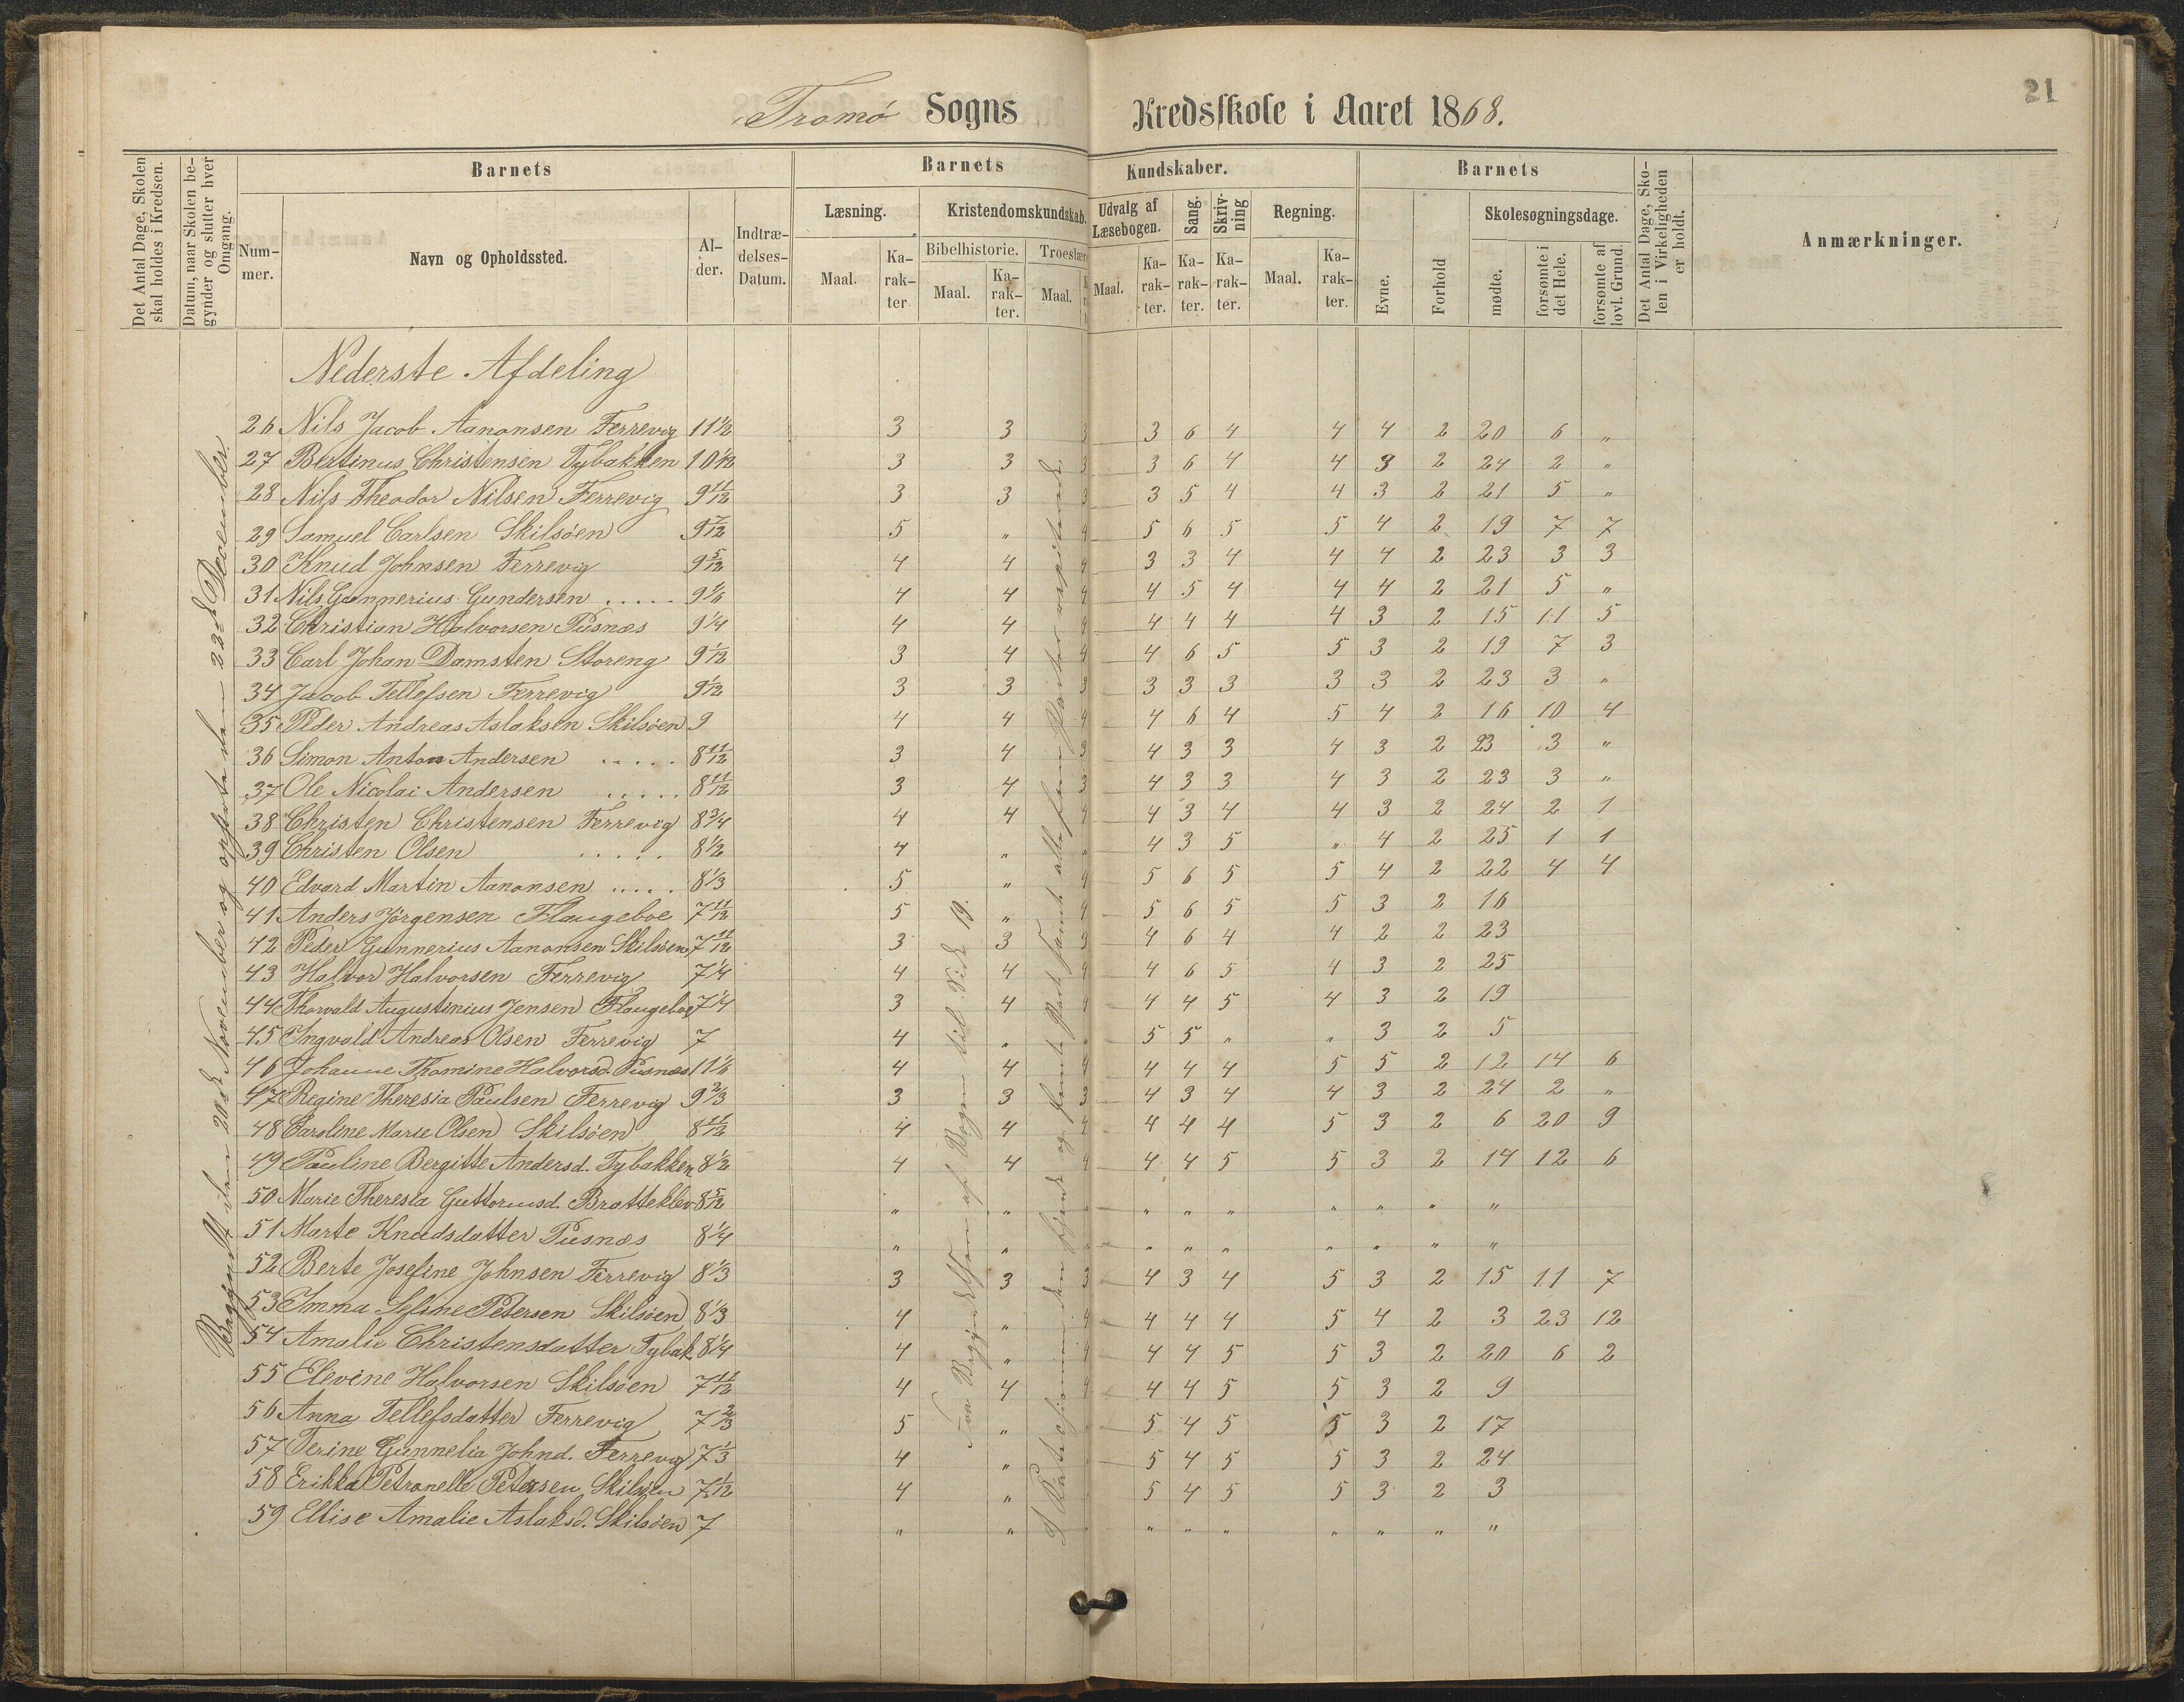 21
Tromø Sogns Kredsskole i Aaret 1868.
Det Antal Dage, Skolen skal holdes i Kredsen.
Datum, naar Skolen begynder og slutter hver Omgang.
Barnets
Barnets Kundskaber.
Barnets
Det Antal Dage, Skolen i Virkeligheden er holdt.
Anmærkninger.
Nummer.
Navn og Opholdssted.
Alder.
Indtrædelses-Datum.
Læsning.
Kristendomskundskab.
Udvalg af Læsebogen.
Sang.
Skrivning
Regning.
Evne.
Forhold
Skolesøgningsdage.
Bibelhistorie.
Troeslære
Maal. Karakter Maal. Karakter. Maal. Maal. Karakter. Karakter. Karakter. Maal. Karakter.
mødte.
forsømte i det Hele.
forsømte af lovl. Grund.
Begyndt den 20de November og ophørte den 23de December.
Fra Begyndelsen af Bogen til Side 19.
Nederste Afdeling
26 Nils Jacob Aanonsen Ferrevig 11 1/2 3 3 3 3 6 4 4 4 2 20 6 "
27 Bertinus Christensen Tybakken 10 1/12 3 3 3 3 6 4 4 3 2 24 2 "
28 Nils Theodor Nilsen Ferrevig 9 11/12 3 3 3 3 5 4 4 3 2 21 5 "
29 Samuel Carlsen Skilsøen 9 7/12 5 " 4 5 6 5 5 4 2 19 7 7
30 Knud Johnsen Ferrevig 9 5/12 4 4 4 3 3 4 4 4 2 23 3 3
31 Nils Gunnerius Gundersen ..... 9 1/6 4 4 4 4 5 4 4 4 2 21 5 "
32 Christian Halvorsen Pusnæs 9 1/4 4 4 4 4 4 4 4 3 2 15 11 5
33 Carl Johan Damsten Storeng 9 1/12 3 4 4 4 6 5 5 3 2 19 7 3
34 Jacob Tellefsen Ferrevig 9 1/12 3 3 3 3 3 3 3 3 2 23 3 "
35 Peder Andreas Aslaksen Skilsøen 9 4 4 4 4 6 4 5 4 2 16 10 4
36 Simon Anton Andersen ..... 8 11/12 3 4 3 4 3 3 4 3 2 23 3 "
37 Ole Nicolai Andersen ..... 8 11/12 3 4 3 4 3 3 4 3 2 23 3 "
38 Christen Christensen Ferrevig 8 3/4 4 4 4 4 3 4 4 3 2 24 2 1
39 Christen Olsen ..... 8 1/2 4 " " 4 3 5 " 4 2 25 1 1
40 Edvard Martin Aanonsen ..... 8 1/3 5 " 4 5 6 5 5 4 2 22 4 4
41 Anders Jørgensen Flangeboe 7 11/12 5 " 4 5 6 5 5 3 2 16
42 Peder Gunnerius Aanonsen Skilsøen 7 11/12 3 3 3 4 6 4 4 2 2 23
43 Halvor Halvorsen Ferrevig 7 1/4 4 4 4 4 6 5 4 3 2 25
44 Thorvald Augustinius Jensen Flangeboe 7 1/4 3 4 4 4 4 5 4 3 2 19
45 Ingvald Andreas Olsen Ferrevig 7 4 " " 5 5 " " 3 2 5
46 Johanne Thomine Halvorsd. Pusnæs 11 1/6 4 4 4 4 4 4 5 5 2 12 14 6
47 Regine Theresia Paulsen Ferrevig 9 2/3 3 3 3 4 3 4 4 3 2 24 2 "
48 Caroline Marie Olsen Skilsøen 8 11/12 4 4 4 4 4 4 5 3 2 6 20 9
49 Pauline Bergitte Andersd. Tybakken 8 1/2 4 4 4 4 4 5 5 3 2 14 12 6
50 Marie Theresia Guttormsd. Bratteklev 8 5/12 " " " " " " " " " "
51 Marte Knudsdatter Pusnæs 8 1/4 " " " " " " " " " "
52 Berte Josefine Johnsen Ferrevig 8 1/3 3 3 3 4 3 4 5 3 2 15 11 7
53 Imma Sefine Petersen Skilsøen 8 1/3 4 " 4 4 4 4 5 4 2 3 23 12
54 Amalie Christensdatter Tybak 8 1/4 4 " 4 4 4 5 5 3 2 20 6 2
55 Elevine Halvorsen Skilsøen 7 11/12 4 4 4 4 4 5 5 3 2 9
56 Anna Tellefsdatter Ferrevig 7 2/3 5 " 5 4 5 5 3 2 17
57 Terine Gunnelia Johnd. Ferrevig 7 1/3 4 " 5 4 5 5 3 2 24
58 Erikka Petronelle Petersen Skilsøen 7 1/12 4 " 5 4 5 5 3 2 3
59 Ellise Amalie Aslaksd. Skilsøen 7 " " " " " " " " "